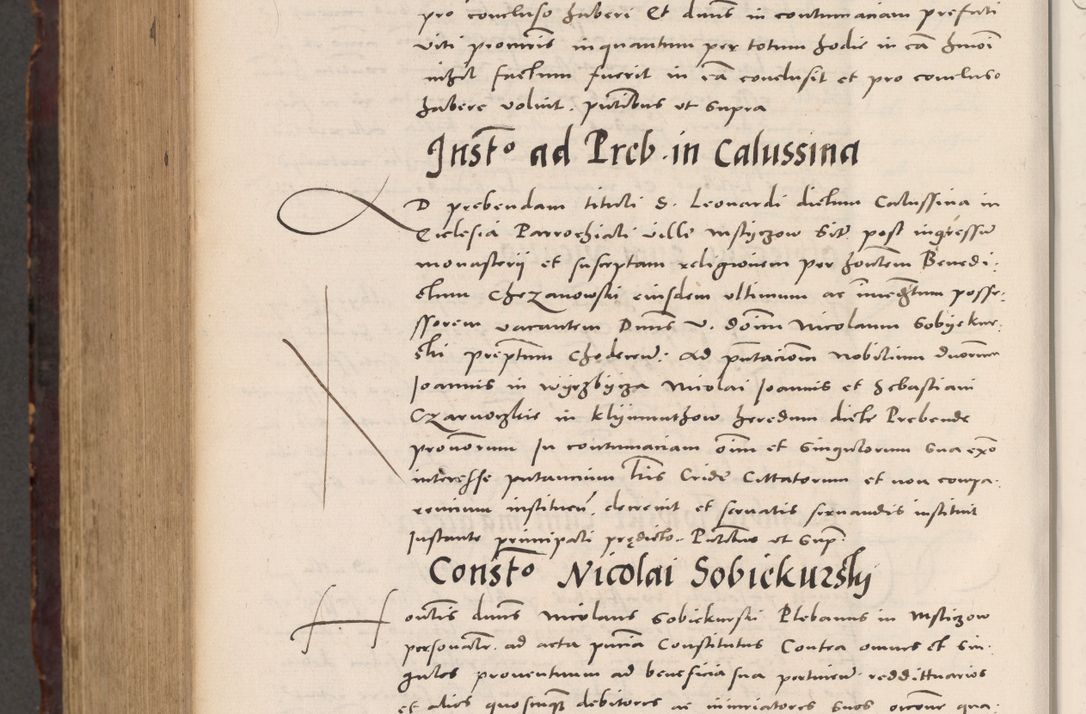 pro concluso haberi Et dnus in contumaciam prefati
viti pronoris inquantum per totum hodie in ea hmoi
nihil factum fuerit in ea conclusit et pro concluso
habere voluit. pntibus ut supra
Insto ad Preb. in Calussina
D prebendam tituli S. Leonardi dictum Calussina in
Ecclesia Parrochiali ville Mstyczow sit. post ingressum
monasterij et susceptam religionem per hontem Benedi-
ctum Chrzanowski eiusdem ultimum ac immediatum posse-
ssorem vacantem Dnus V. doim Nicolaum Sobyekur-
ski preptum Choderow. ad pntacionem nobilium duorum
Joannis in Wyrzbycza Nicolai Joannis et Sebastiani
Czarnoczkie in Klyimuthow heredum dicte Prebende
In contumaciam oim et singulorum sua
interesse putancium Lris Cride Cittatorum et non compa-
rencium instituen. decrevit et servatis servandis instituit
Instante principali predicto. Pntibus ut sup
Consto Nicolai Sobiekurskj
H ontis dnus Nicolaus Sobiekurski Plebanus in Msticzow
personaltr. ad acta pncia Constitutus Contra omnes et sin-
gulos proventuum ad beneficia sua pertinen. reddittuarios
et alios quoscunque debitores ac iniuriatores suos